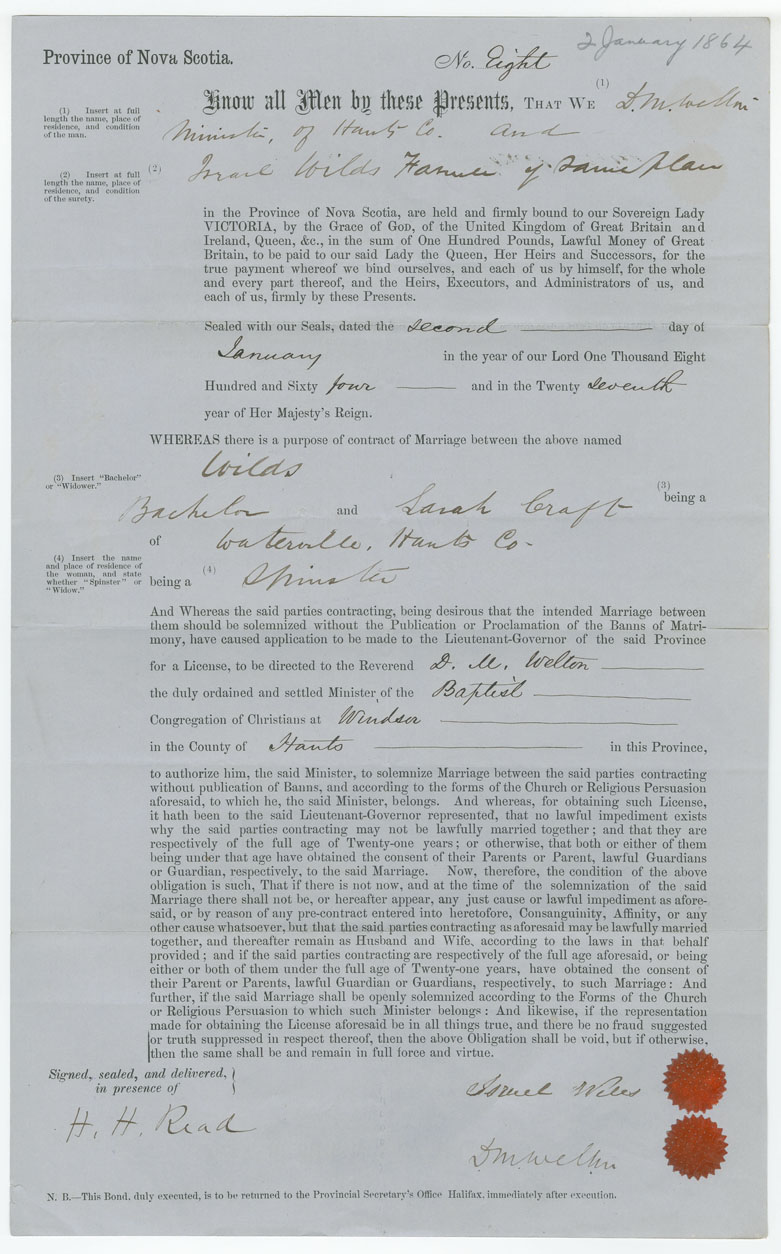 2 January 1864
Province of Nova Scotia.
No. Eight
Know all Men by these Presents, THAT WE (1) D. M. Welton
Minister, of Hants Co. and
(2) Israel Wilds Farmer of Same place
(1) Insert at full
length the name, place of
residence, and condition
of the man.
(2) Insert at full
length the name, place of
residence, and condition
of the surety.
in the Province of Nova Scotia, are held and firmly bound to our Sovereign Lady
VICTORIA, by the Grace of GOD, of the United Kingdom of Great Britain and
Ireland, Queen, &c., in the sum of One Hundred Pounds, Lawful Money of Great
Britain, to be paid to our said Lady the Queen, Her Heirs and Successors, for the
true payment whereof we bind ourselves, and each of us by himself, for the whole
and every part thereof, and the Heirs, Executors, and Administrators of us, and
each of us, firmly by these Presents.
Sealed with our Seals, dated the second day of
January in the year of our Lord One Thousand Eight
Hundred and Sixty four and in the Twenty seventh
year of Her Majesty's Reign.
WHEREAS there is a purpose of contract of Marriage between the above named
Wilds
(3) Insert "Bachelor"
or "Widower."
(3) being a
Bachelor and Sarah Craft
of Waterville, Hants Co-
(4) Insert the name
and place of residence of
the woman, and state
whether "Spinster" or
"Widow."
being a (4) Spinster
And Whereas the said parties contracting, being desirous that the intended Marriage between
them should be solemnized without the Publication or Proclamation of the Banns of Matri-
mony, have caused application to be made to the Lieutenant-Governor of the said Province
for a License, to be directed to the Reverend D. M. Welton
the duly ordained and settled Minister of the Baptist
Congregation of Christians at Windsor
in the County of Hants in this Province,
to authorize him, the said Minister, to solemnize Marriage between the said parties contracting
without publication of Banns, and according to the forms of the Church or Religious Persuasion
aforesaid, to which he, the said Minister, belongs. And whereas, for obtaining such License,
it hath been to the said Lieutenant-Governor represented, that no lawful impediment exists
why the said parties contracting may not be lawfully married together; and that they are
respectively of the full age of Twenty-one years; or otherwise, that both or either of them
being under that age have obtained the consent of their Parents or Parent, lawful Guardians
or Guardian, respectively, to the said Marriage. Now, therefore, the condition of the above
obligation is such, That if there is not now, and at the time of the solemnization of the said
Marriage there shall not be, or hereafter appear, any just cause or lawful impediment as afore-
said, or by reason of any pre-contract entered into heretofore, Consanguinity, Affinity, or any
other cause whatsoever, but that the said parties contracting as aforesaid may be lawfully married
together, and thereafter remain as Husband and Wife, according to the laws in that behalf
provided; and if the said parties contracting are respectively of the full age aforesaid, or being
either or both of them under the full age of Twenty-one years, have obtained the consent of
their Parent or Parents, lawful Guardian or Guardians, respectively, to such Marriage: And
further, if the said Marriage shall be openly solemnized according to the Forms of the Church
or Religious Persuasion to which such Minister belongs: And likewise, if the representation
made for obtaining the License aforesaid be in all things true, and there be no fraud suggested
or truth suppressed in respect thereof, then the above Obligation shall be void, but if otherwise,
then the same shall be and remain in full force and virtue.
Signed, sealed, and delivered,
in presence of
H. H. Read
Israel Wiles
D. M. Welton
N. B.—This Bond, duly executed, is to be returned to the Provincial Secretary's Office Halifax, immediately after execution.